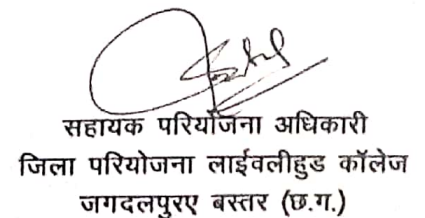 सहायक परियोजना अधिकारी
जिला परियोजना लाईवलीहुड कॉलेज
जगदलपुरए बस्तर (छ.ग.)